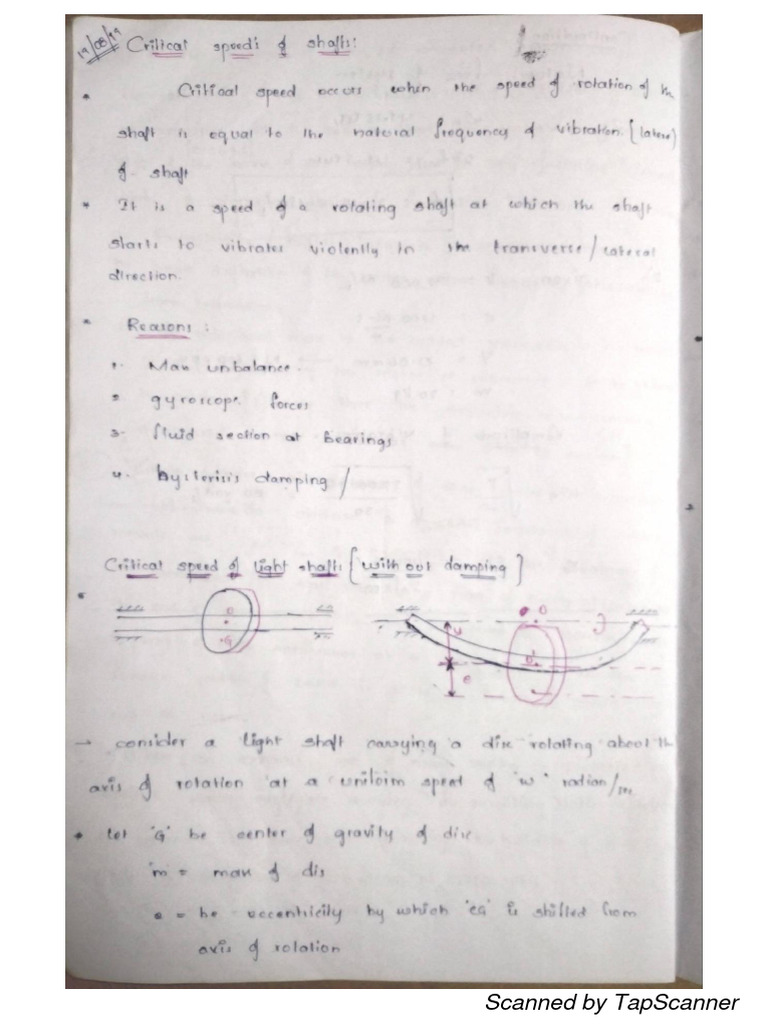 19/08/19
Critical speeds of shafts:
* Critical speed occurs when the speed of rotation of the
shaft is equal to the natural frequency of vibration. [lateral)
of shaft
* It is a speed of a rotating shaft at which the shaft
starts to vibrates violently in the transverse/lateral
direction.
* Reasons :
1. Mass unbalance.
2. gyroscope forces
3- fluid section at bearings
4. hysterisis damping /
Critical speed of light shafts [with out damping]
O
G
O
u
e
→ consider a light shaft carrying a disc rotating about the
axis of rotation at a uniform speed of 'w' radian/sec
* Let 'G' be center of gravity of disc
'm' = mass of dis
e = be eccentricity by which 'CG' is shifted from
axis of rotation
Scanned by TapScanner